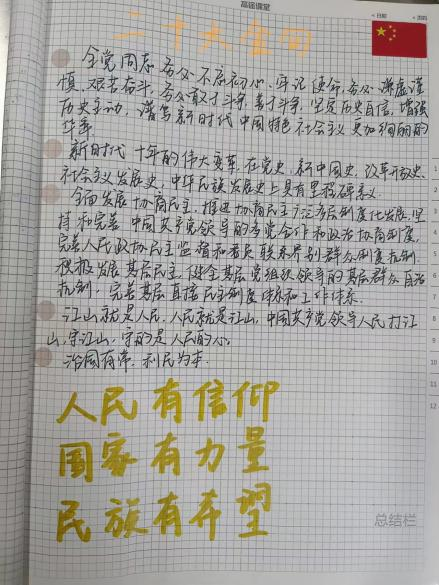 高途课堂
二十大金句
全党同志务必不忘初心、牢记使命,务必谦虚谨
慎、艰苦奋斗,务必敢于斗争、善于斗争,坚定历史自信,增强
历史主动,谱写新时代中国特色社会主义更加绚丽的
华章
新时代十年的伟大变革,在党史、新中国史、改革开放史、
社会主义发展史、中华民族发展史上具有里程碑意义.
全面发展协商民主,推进协商民主广泛多层制度化发展,坚
持和完善中国共产党领导的多党合作和政治协商制度,
完善人民政协民主监督和委员联系界别群众制度机制.
积极发展基层民主,健全基层党组织领导的基层群众自治
机制,完善基层直接民主制度体系和工作体系.
江山就是人民,人民就是江山,中国共产党领导人民打江
山,守江山,守的是人民的心.
治国有常,利民为本.
人民有信仰
国家有力量
民族有希望
总结栏